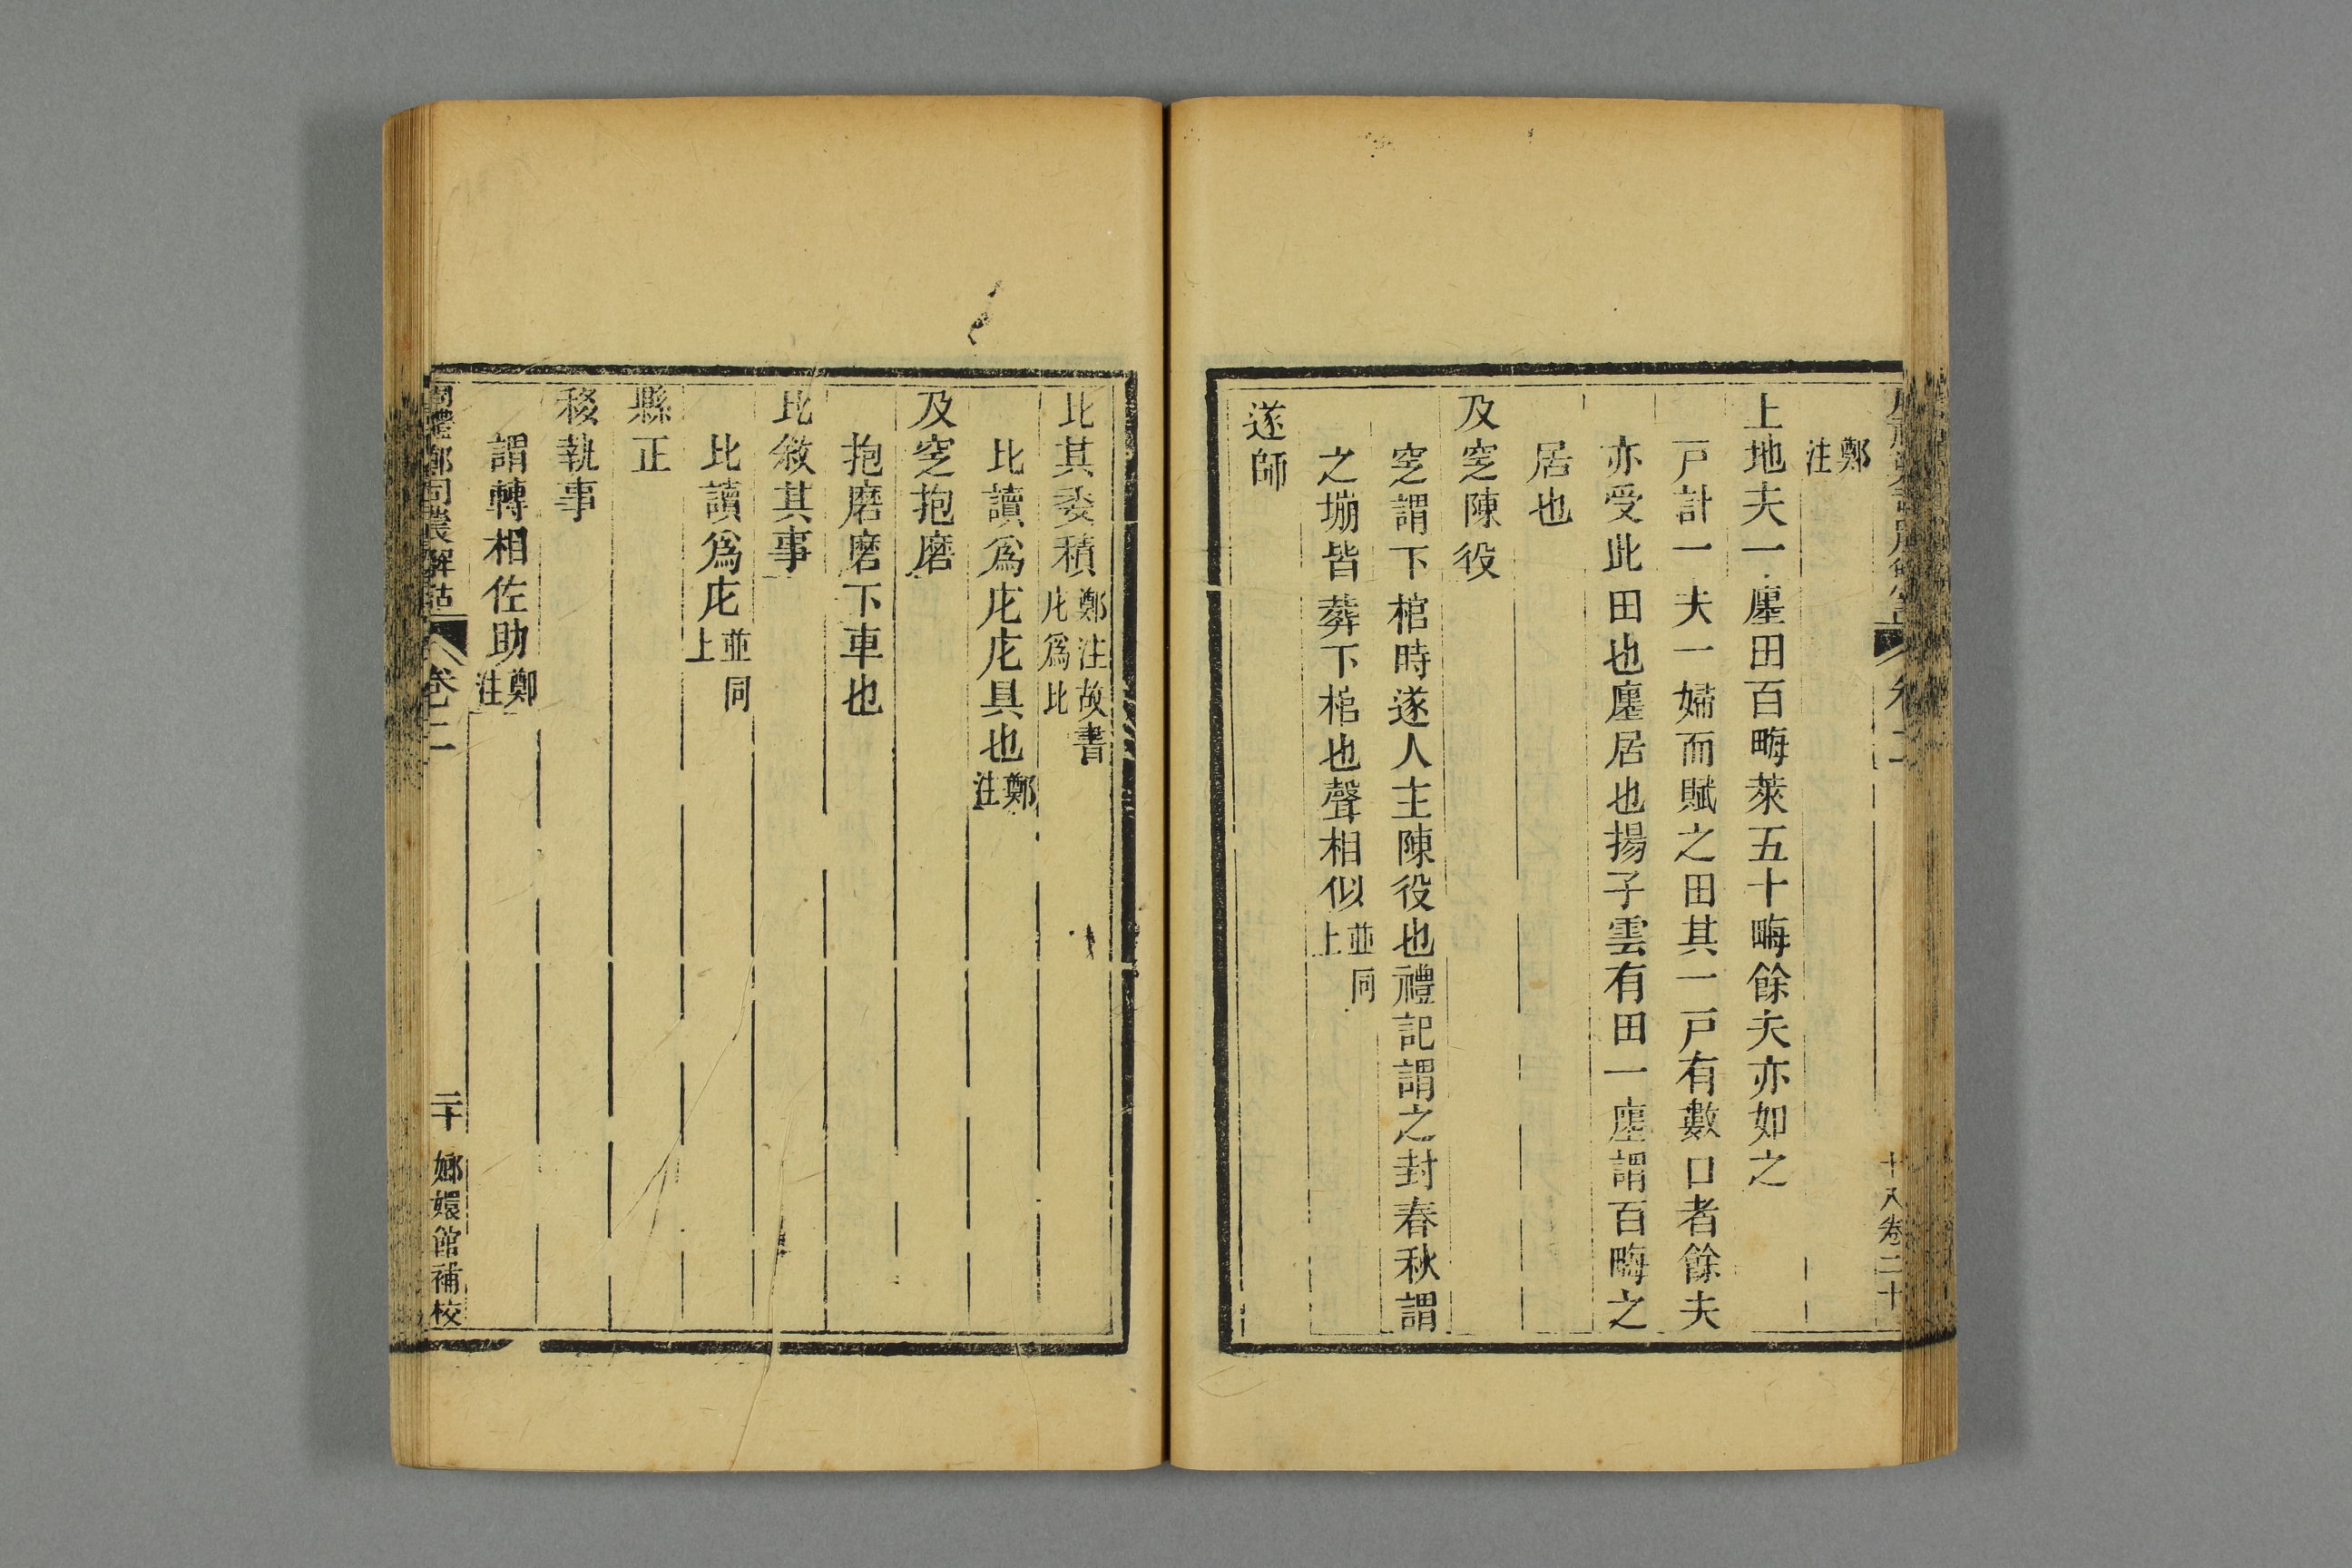 鄭注
上地夫一廛田百畮萊五十畮餘夫亦如之
戸計一夫一婦而賦之田其一戸有數口者餘夫
亦受此田也廛居也揚子雲有田一廛謂百畮之
居也
及窆陳役
窆謂下棺時遂人主陳役也禮記謂之封春秋謂
之塴皆葬下棺也聲相似並同上
遂師
十八卷二十
比其委積鄭注故書庀爲比
比讀爲庀庀具也鄭注
及窆抱磨
抱磨磨下車也
比敘其事
比讀爲庀並同上
縣正
移執事
謂轉相佐助鄭注
周禮鄭司農解詁 卷二 二十 嫏嬛館補校